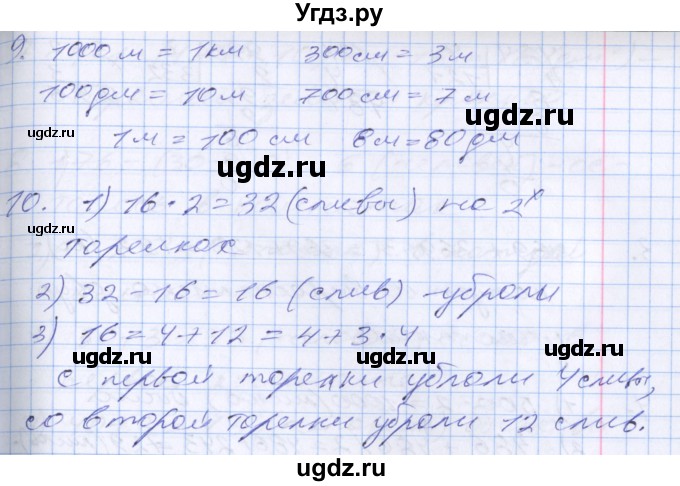 Угдз.ру
9. 1000 м = 1 км 300 см = 3 м
100 дм = 10 м 700 см = 7 м
ugdz.ru ugdz.ru
1 м = 100 см 8 м = 80 дм
ugdz.ru
10. 1) 16 · 2 = 32 (сливы) на 2х
ugdz.ru
тарелках
ugdz.ru
2) 32 - 16 = 16 (слив) - убрали
3) 16 = 4 + 12 = 4 + 3 · 4
ugdz.ru ugdz.ru
с первой тарелки убрали 4 сливы,
со второй тарелки убрали 12 слив.
ugdz.ru
ugdz.ru